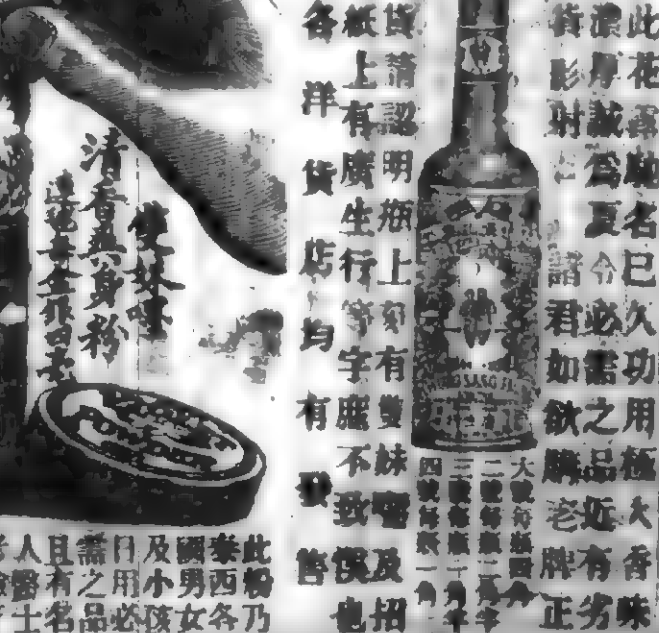 此花露馳名已久功用極大香味
濃厚誠爲夏令必需之品近有劣
貨影射 諸君如欲購老牌正
大號每瓶
二號每瓶
三號每瓶
四號每瓶一角
貨請認明瓶上刻有雙妹嚜及招
紙上有廣生行等字庶不致誤也
各洋貨店均有發售
雙妹嚜
清香爽身粉
此粉乃
泰西各
國男女
及小孩
日用必
需之品
且有名
人醫士